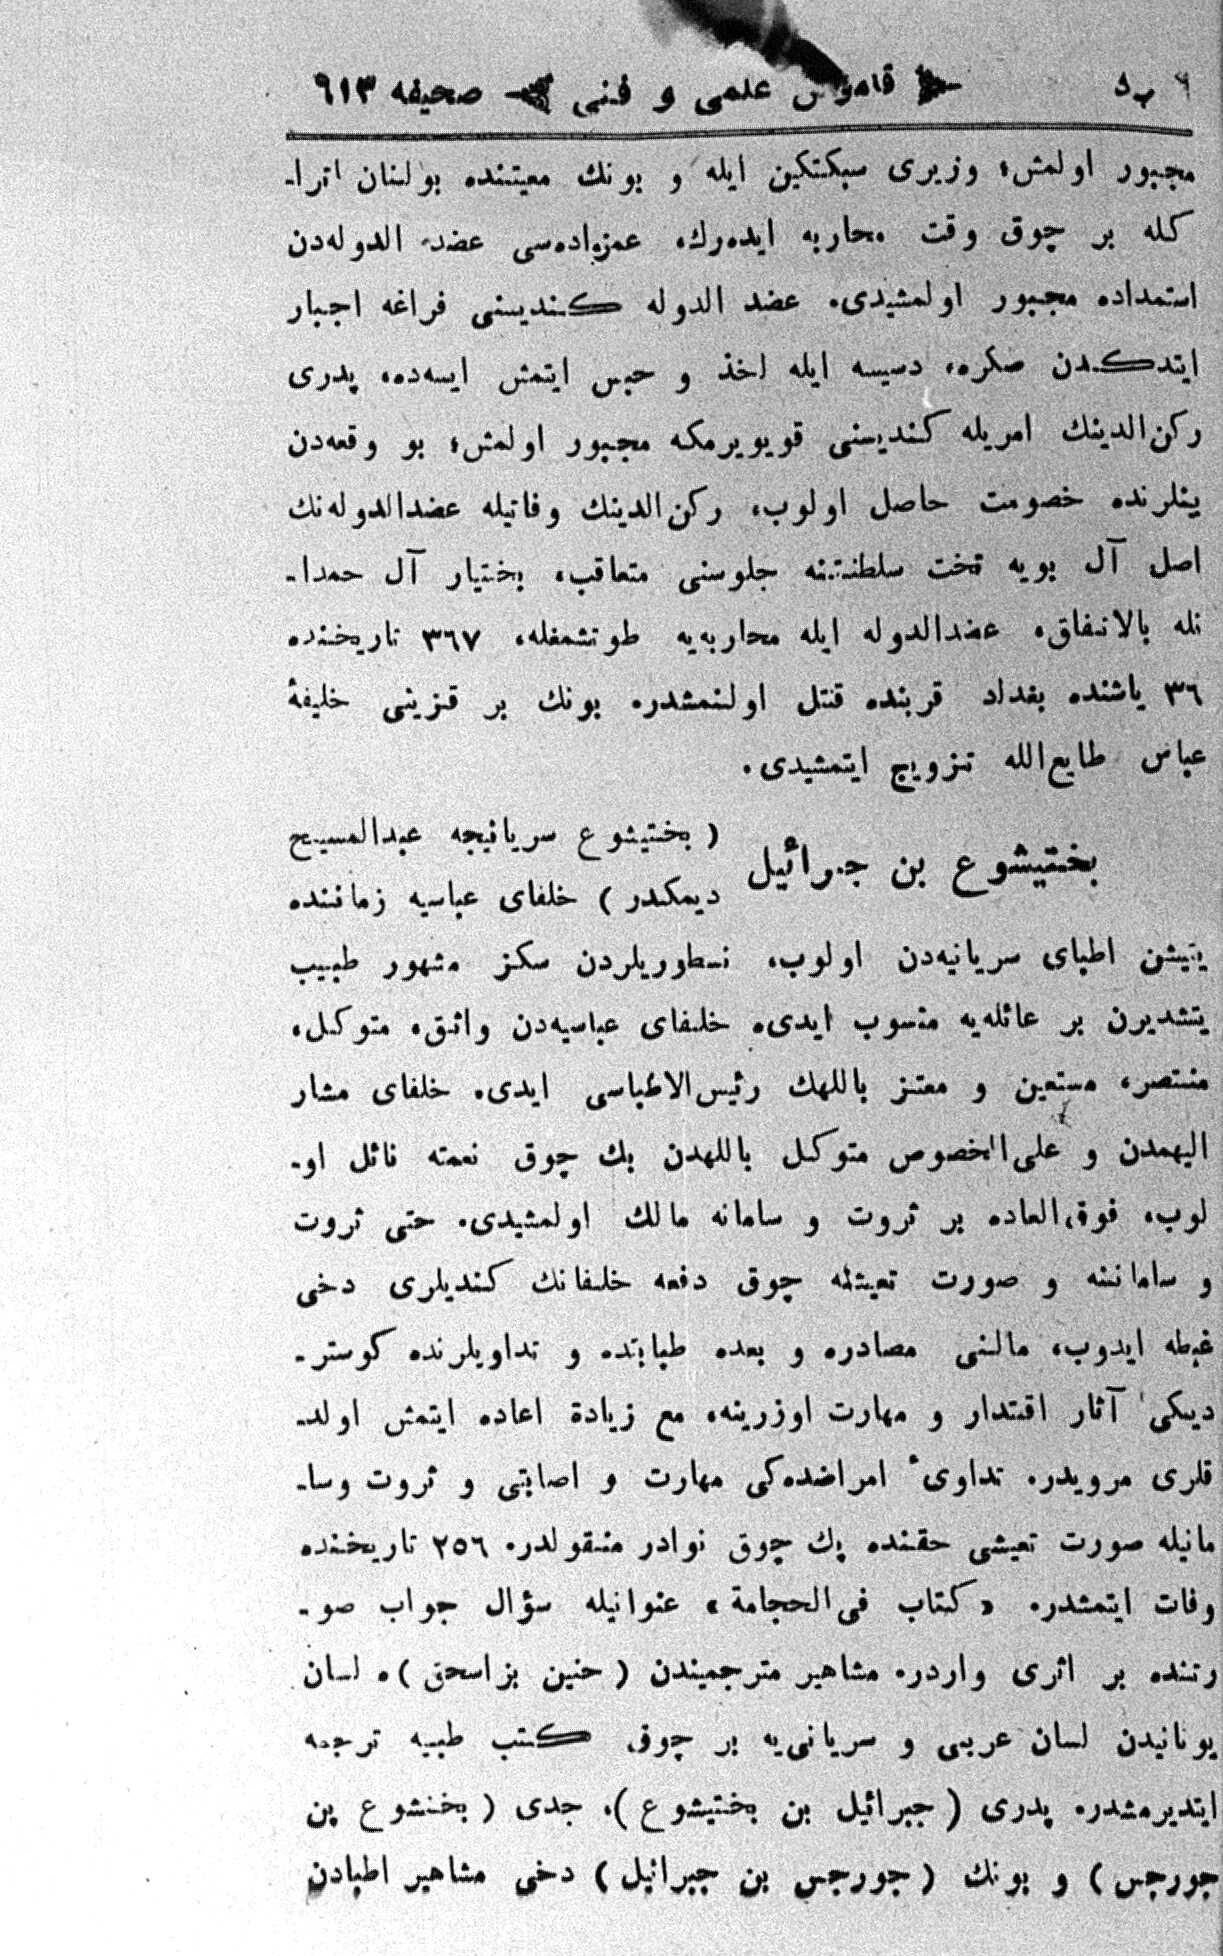 ٦ پ د قاموس علمی و فنی صحیفه ٦١٣
مجبور اولمش؛ وزیری سبکتکین ایله و بونك معیتنده بولنان اترا-
كله بر چوق وقت محاربه ایدەرك، عمزادەسی عضد الدولەدن
استمداده مجبور اولمشیدی. عضد الدوله كندیسنی فراغه اجبار
ایتدكدن صكره، دسیسه ایله اخذ و حبس ایتمش ایسەده، پدری
ركن‌الدینك امریله كندیسنی قویویرمكه مجبور اولمش؛ بو وقعەدن
ینلرنده خصومت حاصل اولوب، ركن‌الدینك وفاتیله عضدالدولەنك
اصل آل بویه تخت سلطنتنه جلوسنی متعاقب، بختیار آل حمدا-
نله بالاتفاق، عضدالدوله ایله محاربەیه طوتشمغله، ٣٦٧ تاریخنده
٣٦ یاشنده بغداد قربنده قتل اولنمشدر. بونك بر قزینی خلیفهٔ
عباس طایع‌الله تزویج ایتمشیدی.
بختیشوع بن جبرائیل ( بختیشوع سریانیجه عبدالمسیح
دیمكدر ) خلفای عباسیه زماننده
یتیشن اطبای سریانیەدن اولوب، نسطوریلردن سكز مشهور طبیب
یتشدیرن بر عائلەیه منسوب ایدی. خلفای عباسیەدن واثق، متوكل،
منتصر، مستعین و معتز باللهك رئیس‌الاطباسی ایدی. خلفای مشار
الیهمدن و علی‌الخصوص متوكل باللهدن پك چوق نعمته نائل او-
لوب، فوق‌العاده بر ثروت و سامانه مالك اولمشیدی. حتی ثروت
و ساماننه و صورت تعیشنه چوق دفعه خلفانك كندیلری دخی
غبطه ایدوب، مالنی مصادره و بعده طبابتده و تداویلرنده كوستر-
دیكی آثار اقتدار و مهارت اوزرینه، مع زیادة اعاده ایتمش اولد-
قلری مرویدر. تداوئ امراضدەكی مهارت و اصابتی و ثروت وسا-
مانیله صورت تعیشی حقنده پك چوق نوادر منقولدر. ٢٥٦ تاریخنده
وفات ایتمشدر. « كتاب فی‌الحجامة » عنوانیله سؤال جواب صو-
رتنده بر اثری واردر. مشاهیر مترجمیندن ( حنین بن‌اسحق ). لسان
یونانیدن لسان عربی و سریانی‌یه بر چوق كتب طبیه ترجمه
ایتدیرمشدر. پدری ( جبرائیل بن بختیشوع )، جدی ( بختشوع بن
جورجس ) و بونك ( جورجس بن جبرائیل ) دخی مشاهیر اطبادن